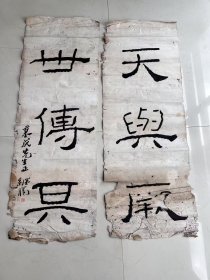 天與厥
世傳其
先生正